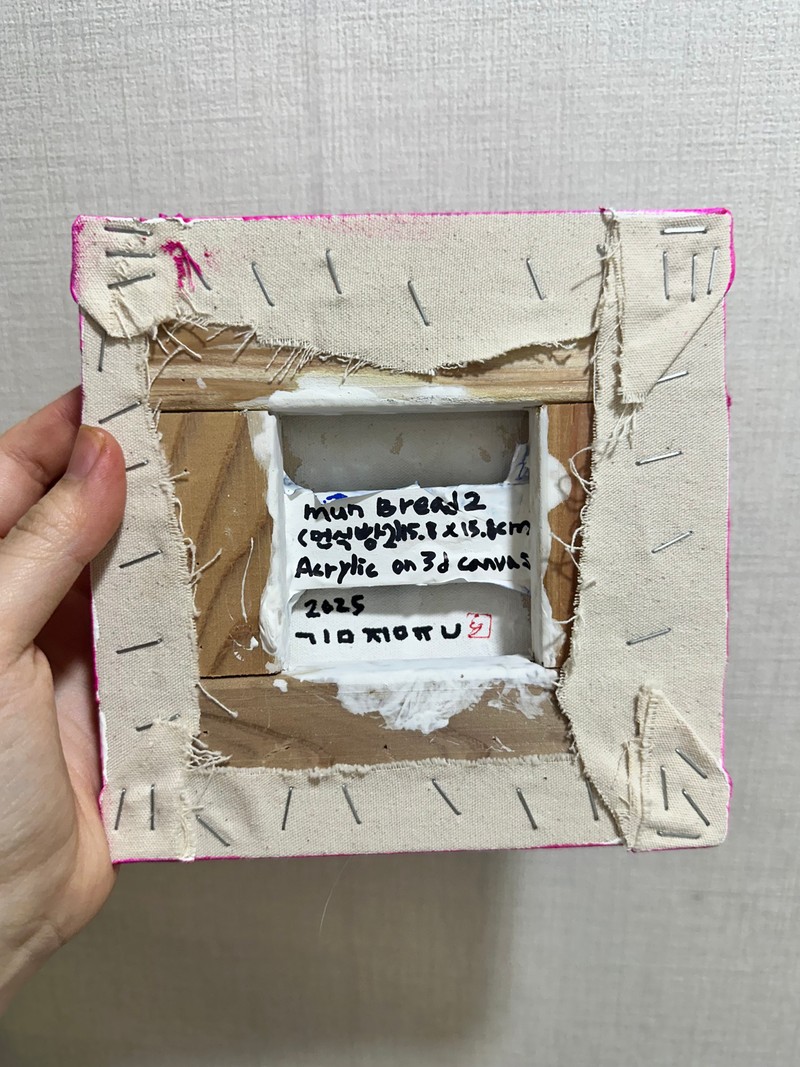 mun Bread2
(먼식빵2)15.8 x 15.8cm
Acrylic on 3d canvas
2025
ㄱㅣㅁ ㅈㅣㅇㅠㄴ